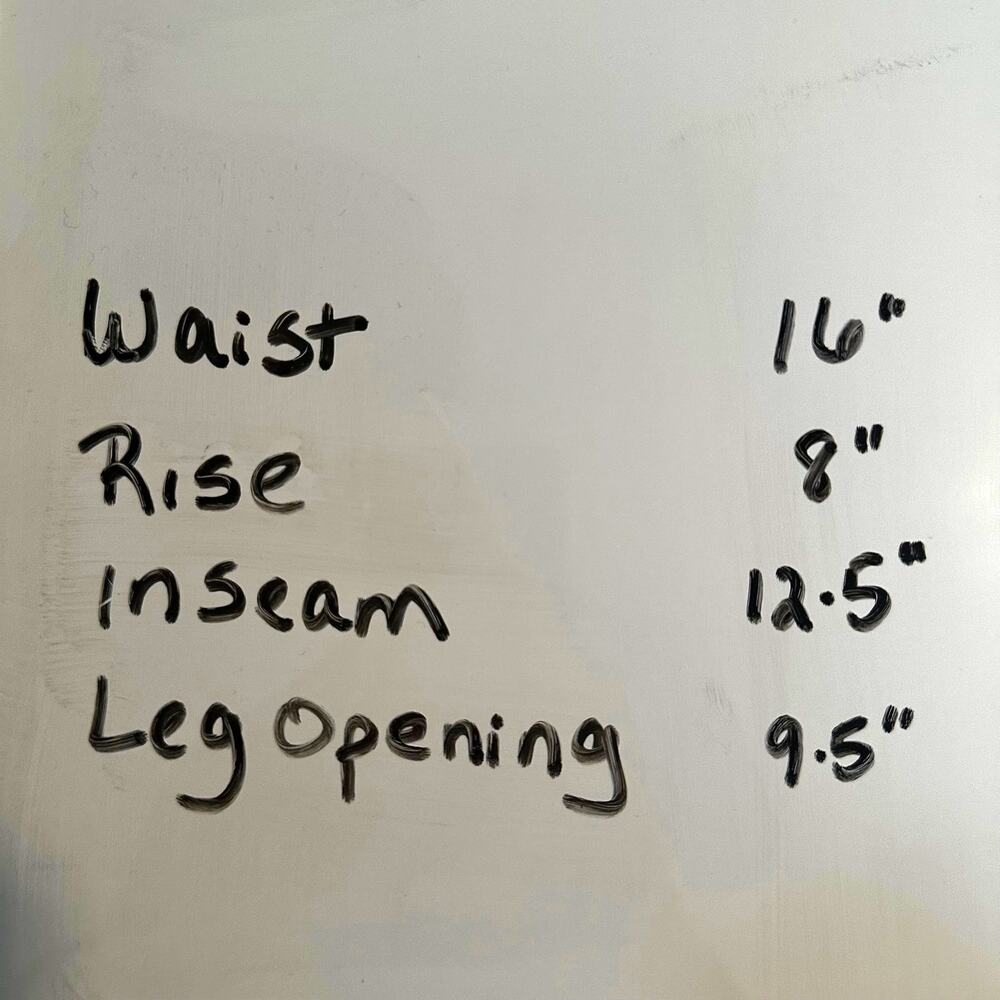 Waist 16"
Rise 8"
Inseam 12.5"
Leg Opening 9.5"